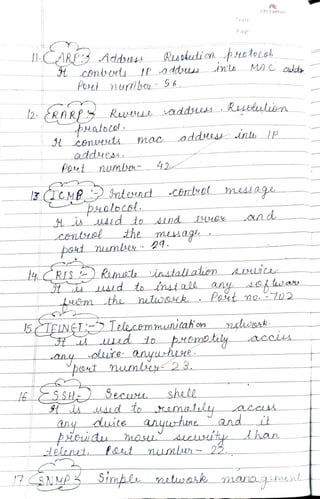 Date
Page
11. ARP :- Address Resolution protocol
It converts IP address into MAC addr
Port number - 56.
12. RARP :- Reverse address Resolution
protocol.
It converts mac address into IP
address.
Port number - 42
13. ICMP :- Internet control message
protocol.
It is used to send error and
control the message.
port number - 29.
14. RIS :- Remote installation service
It is used to install any software
from the network. Port no. - 702
15. TELNET :- Telecommunication network
It is used to promotely access
any device anywhere.
port number - 23.
16. SSH :- Secure shell
It is used to remotely access
any device anywhere and it
provides more security than
telenet. Port number - 22.
17. SNMP Simple network management